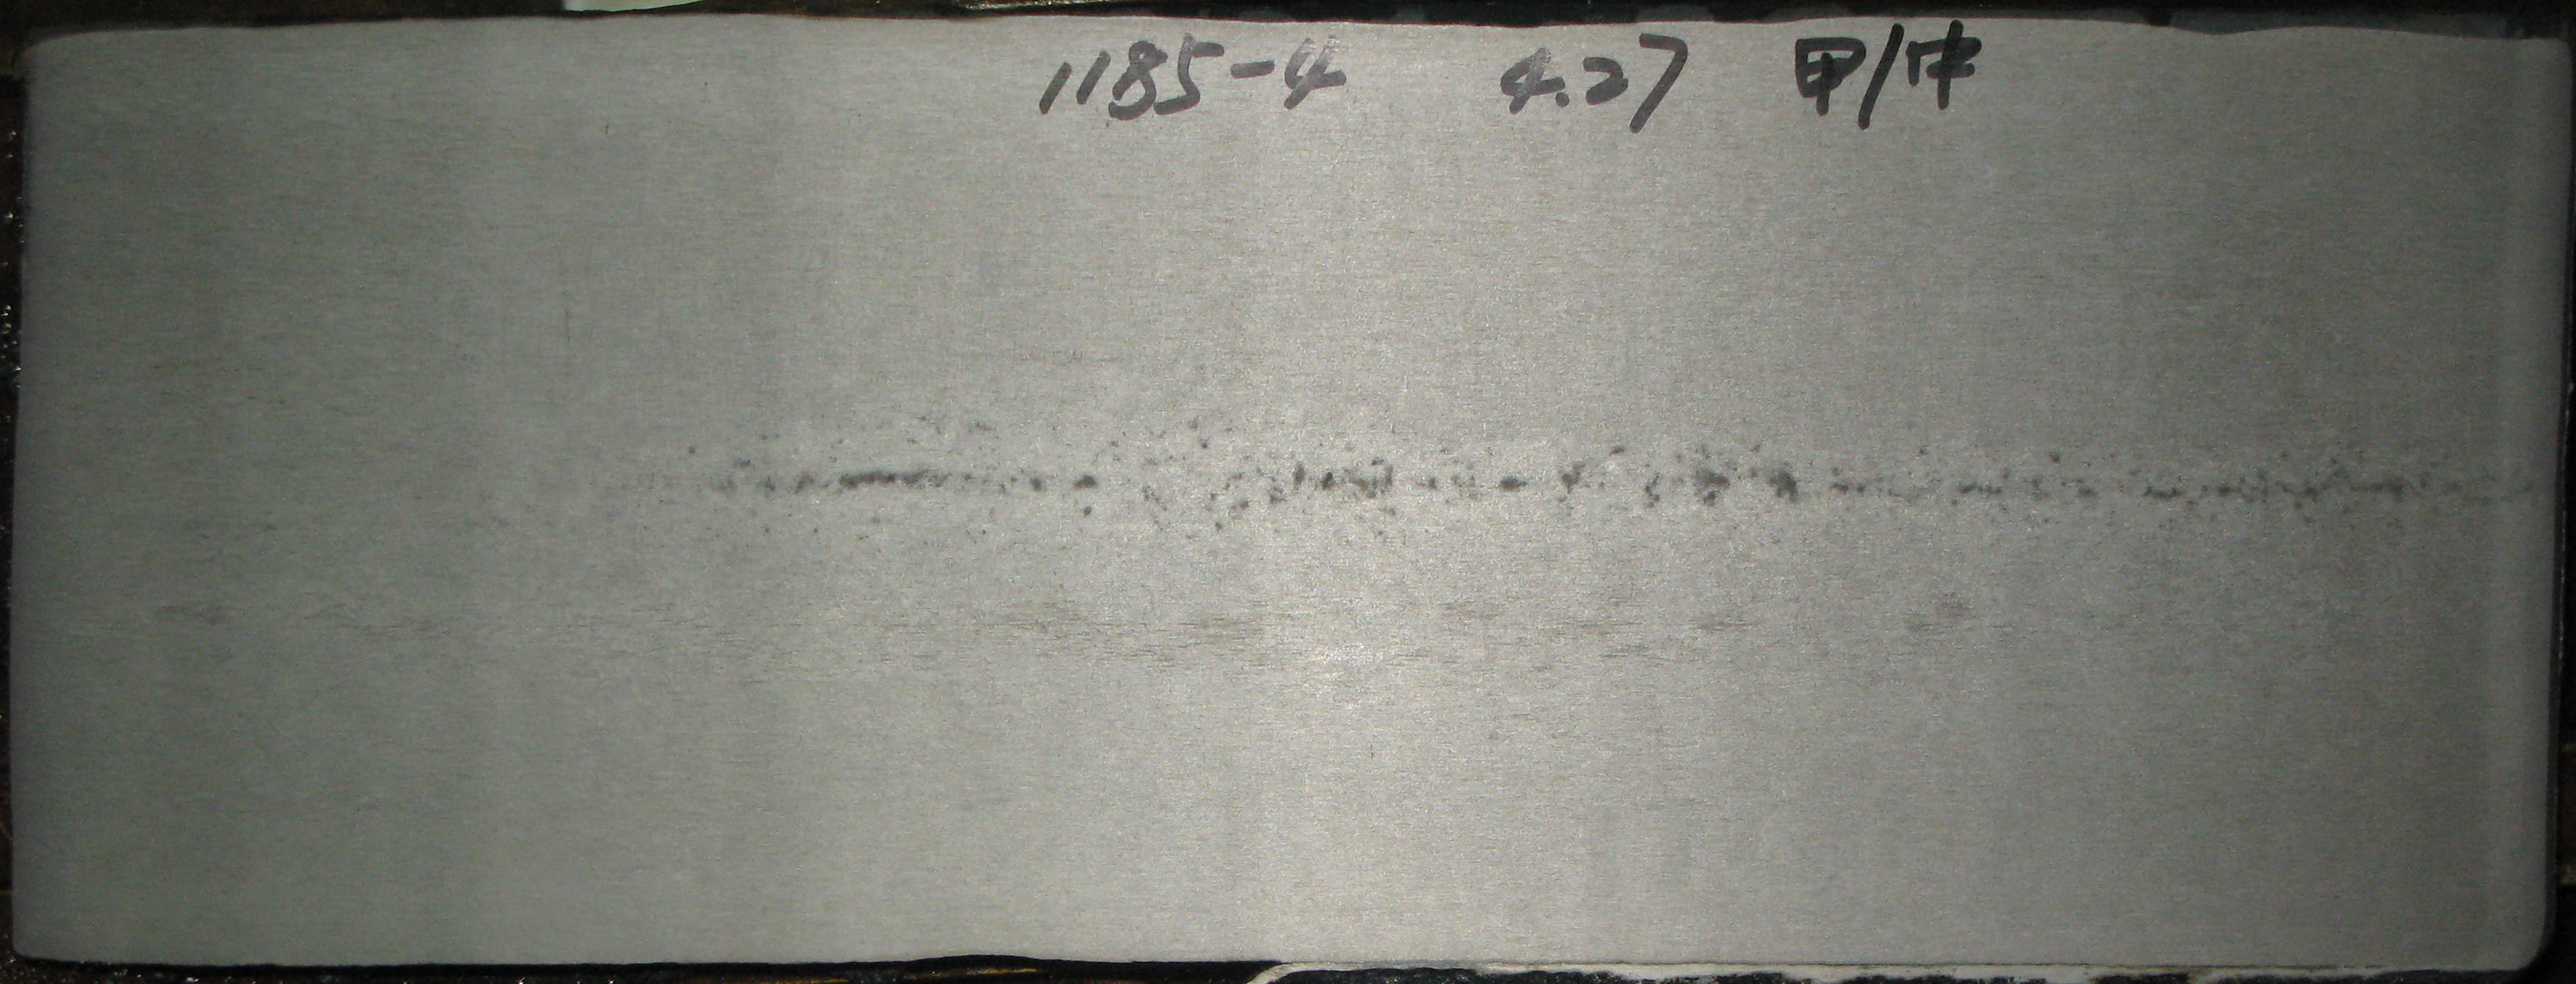 1185-4 4.27 甲/中